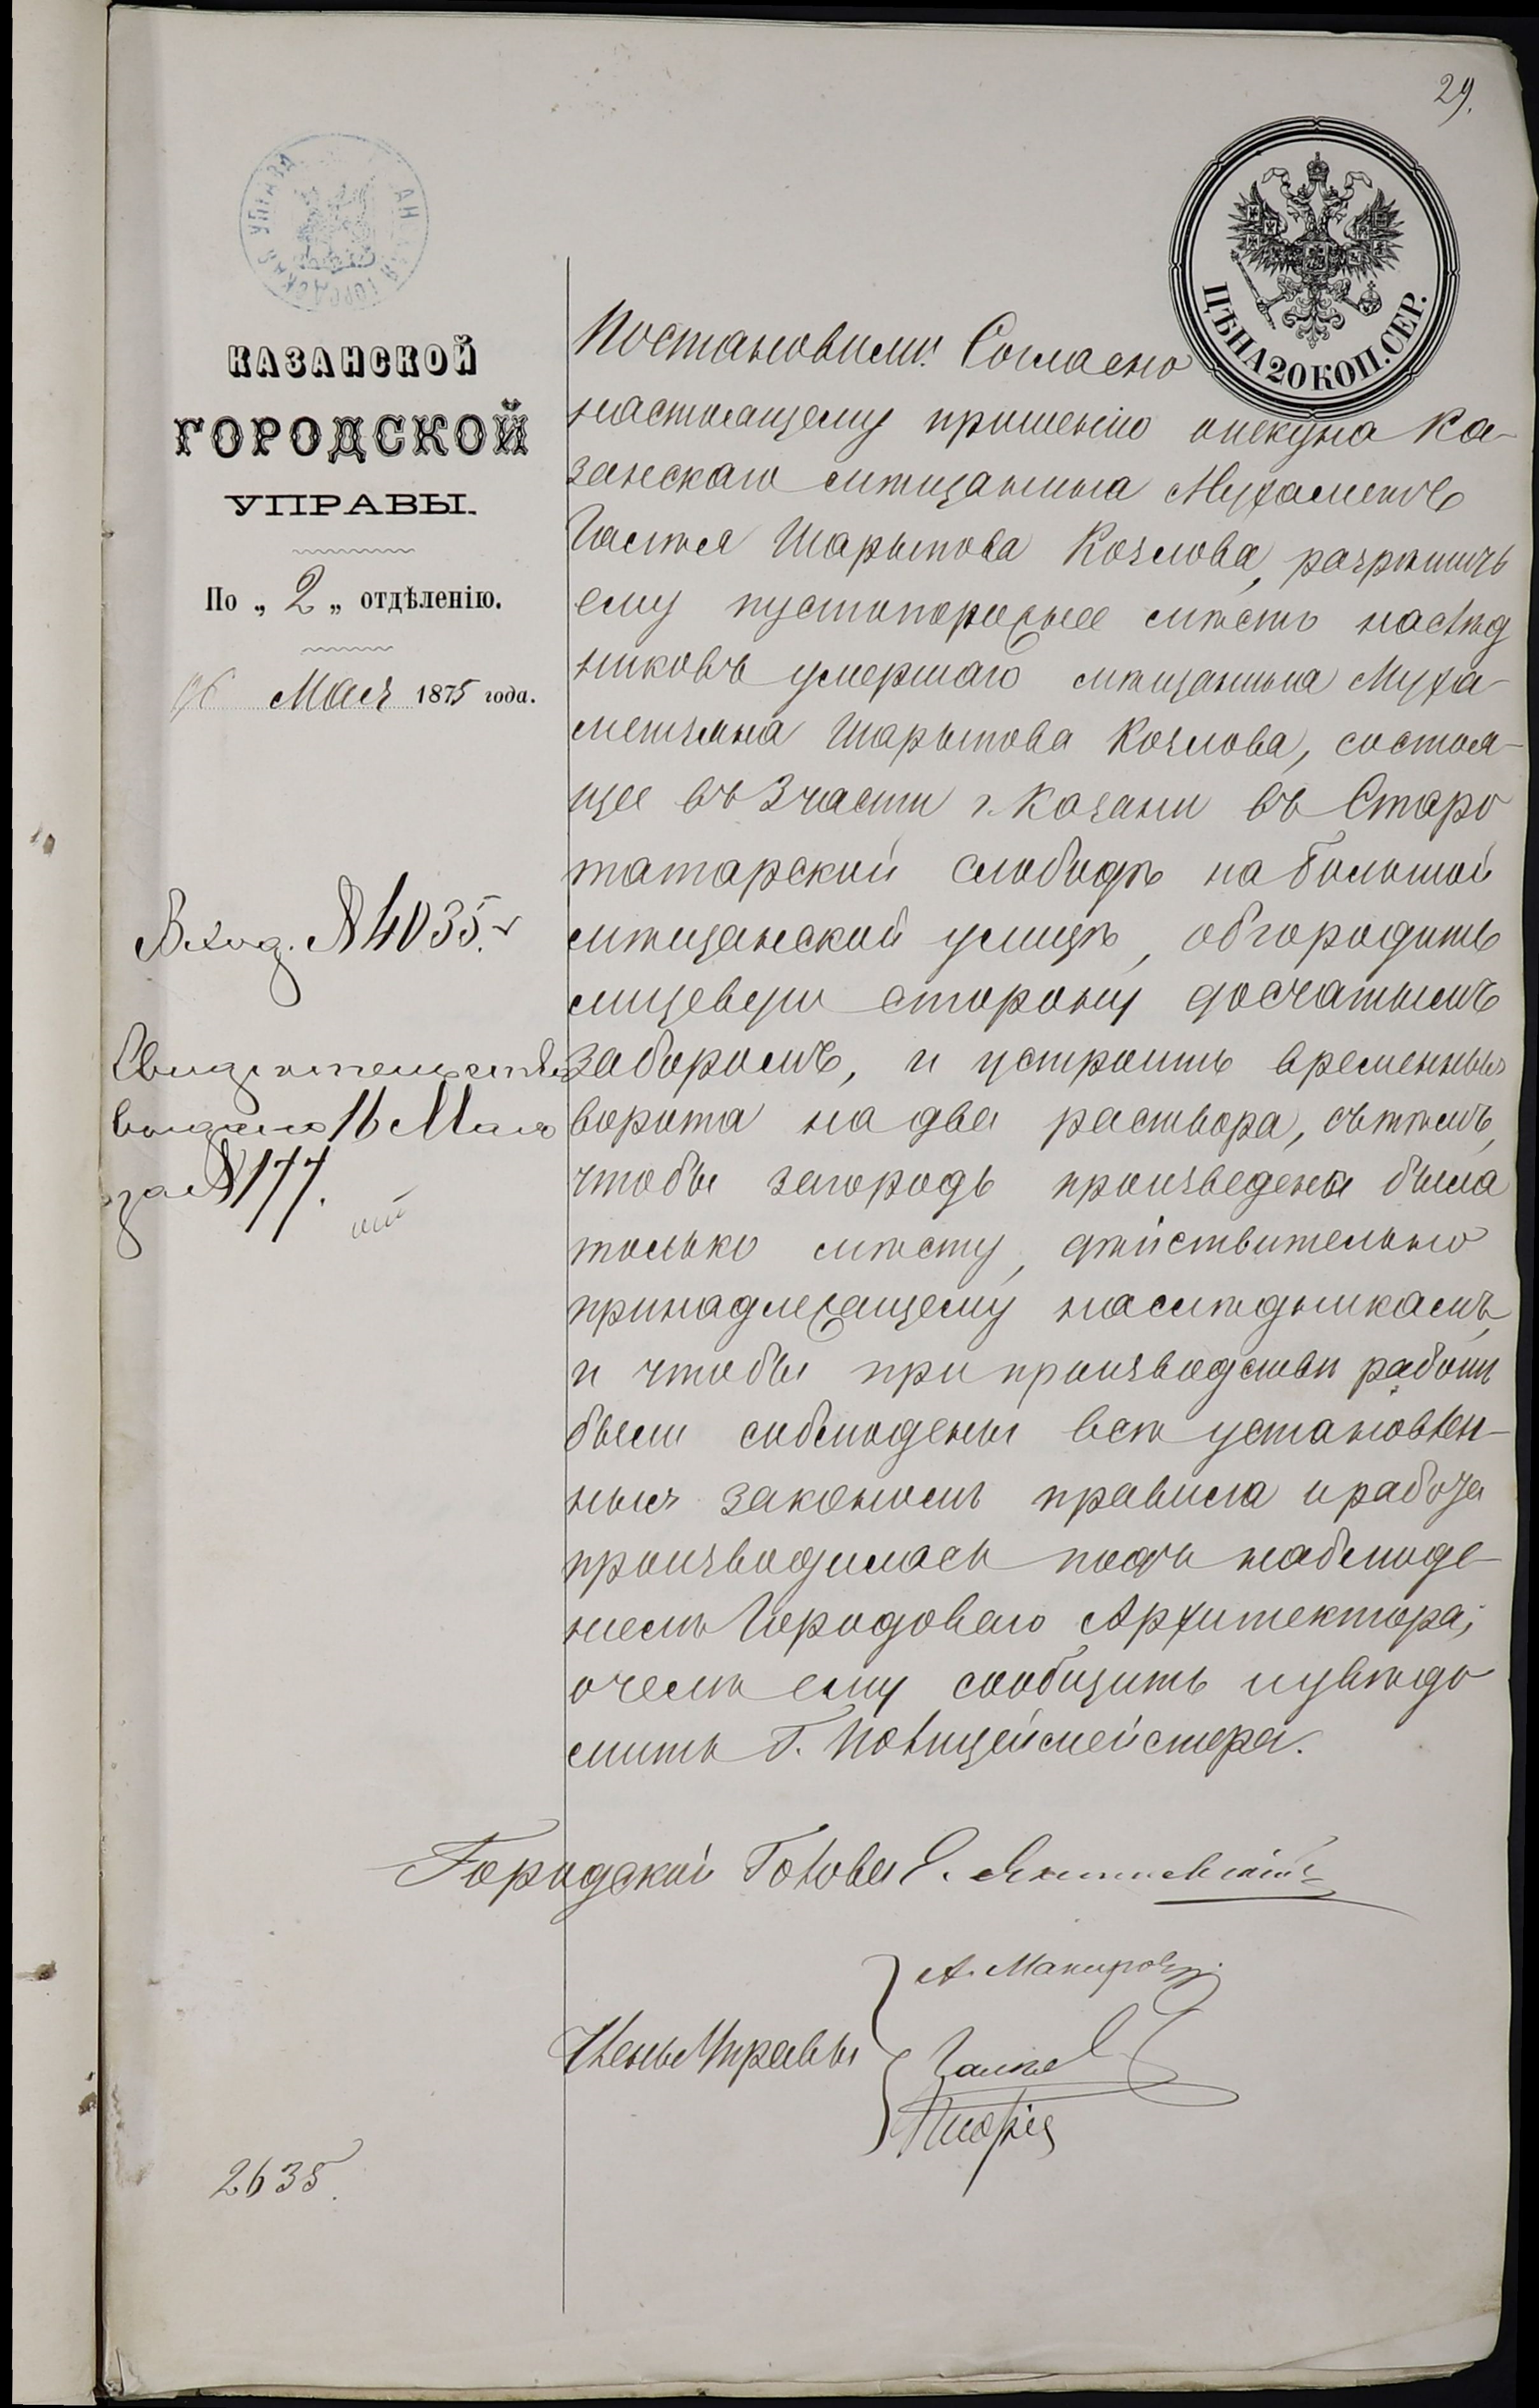 29.
КАЗАНСКАЯ ГОРОДСКАЯ УПРАВА
ЦѢНА 20 КОП. СЕР.
КАЗАНСКОЙ
ГОРОДСКОЙ
УПРАВЫ.
По „ 2 „ отдѣленію.
16 Мая 1875 года.
Вход. № 4035.
Свидѣтельство
выдано 16 Мая
за № 177.
Постановили: Согласно
настоящему прошенію опекуна Ка-
занскаго мѣщанина Мухаметъ
Шарыпова Козлова, разрѣшить
ему пустопорожнее мѣсто наслѣд
никовъ умершаго мѣщанина Муха-
метзяна Шарыпова Козлова, состоя-
щее въ 3 части г. Казани въ Старо
татарской слободѣ на Большой
мѣщанской улицѣ, обгородить
лицевую сторону досчатымъ
заборомъ, и устроить временныя
ворота на два раствора, съ тѣмъ,
чтобы загородь произведена была
только мѣсту, дѣйствительно
принадлежащему наслѣдникамъ,
и чтобы при производствѣ работъ
были соблюдены всѣ установлен-
ныя закономъ правила и работа
производилась подъ наблюде-
ніемъ Городоваго Архитектора;
о чемъ ему сообщить и увѣдо
мить Г. Полицеймейстера.
Городской Голова Е. Янишевскій
Члены Управы
А.
2635.